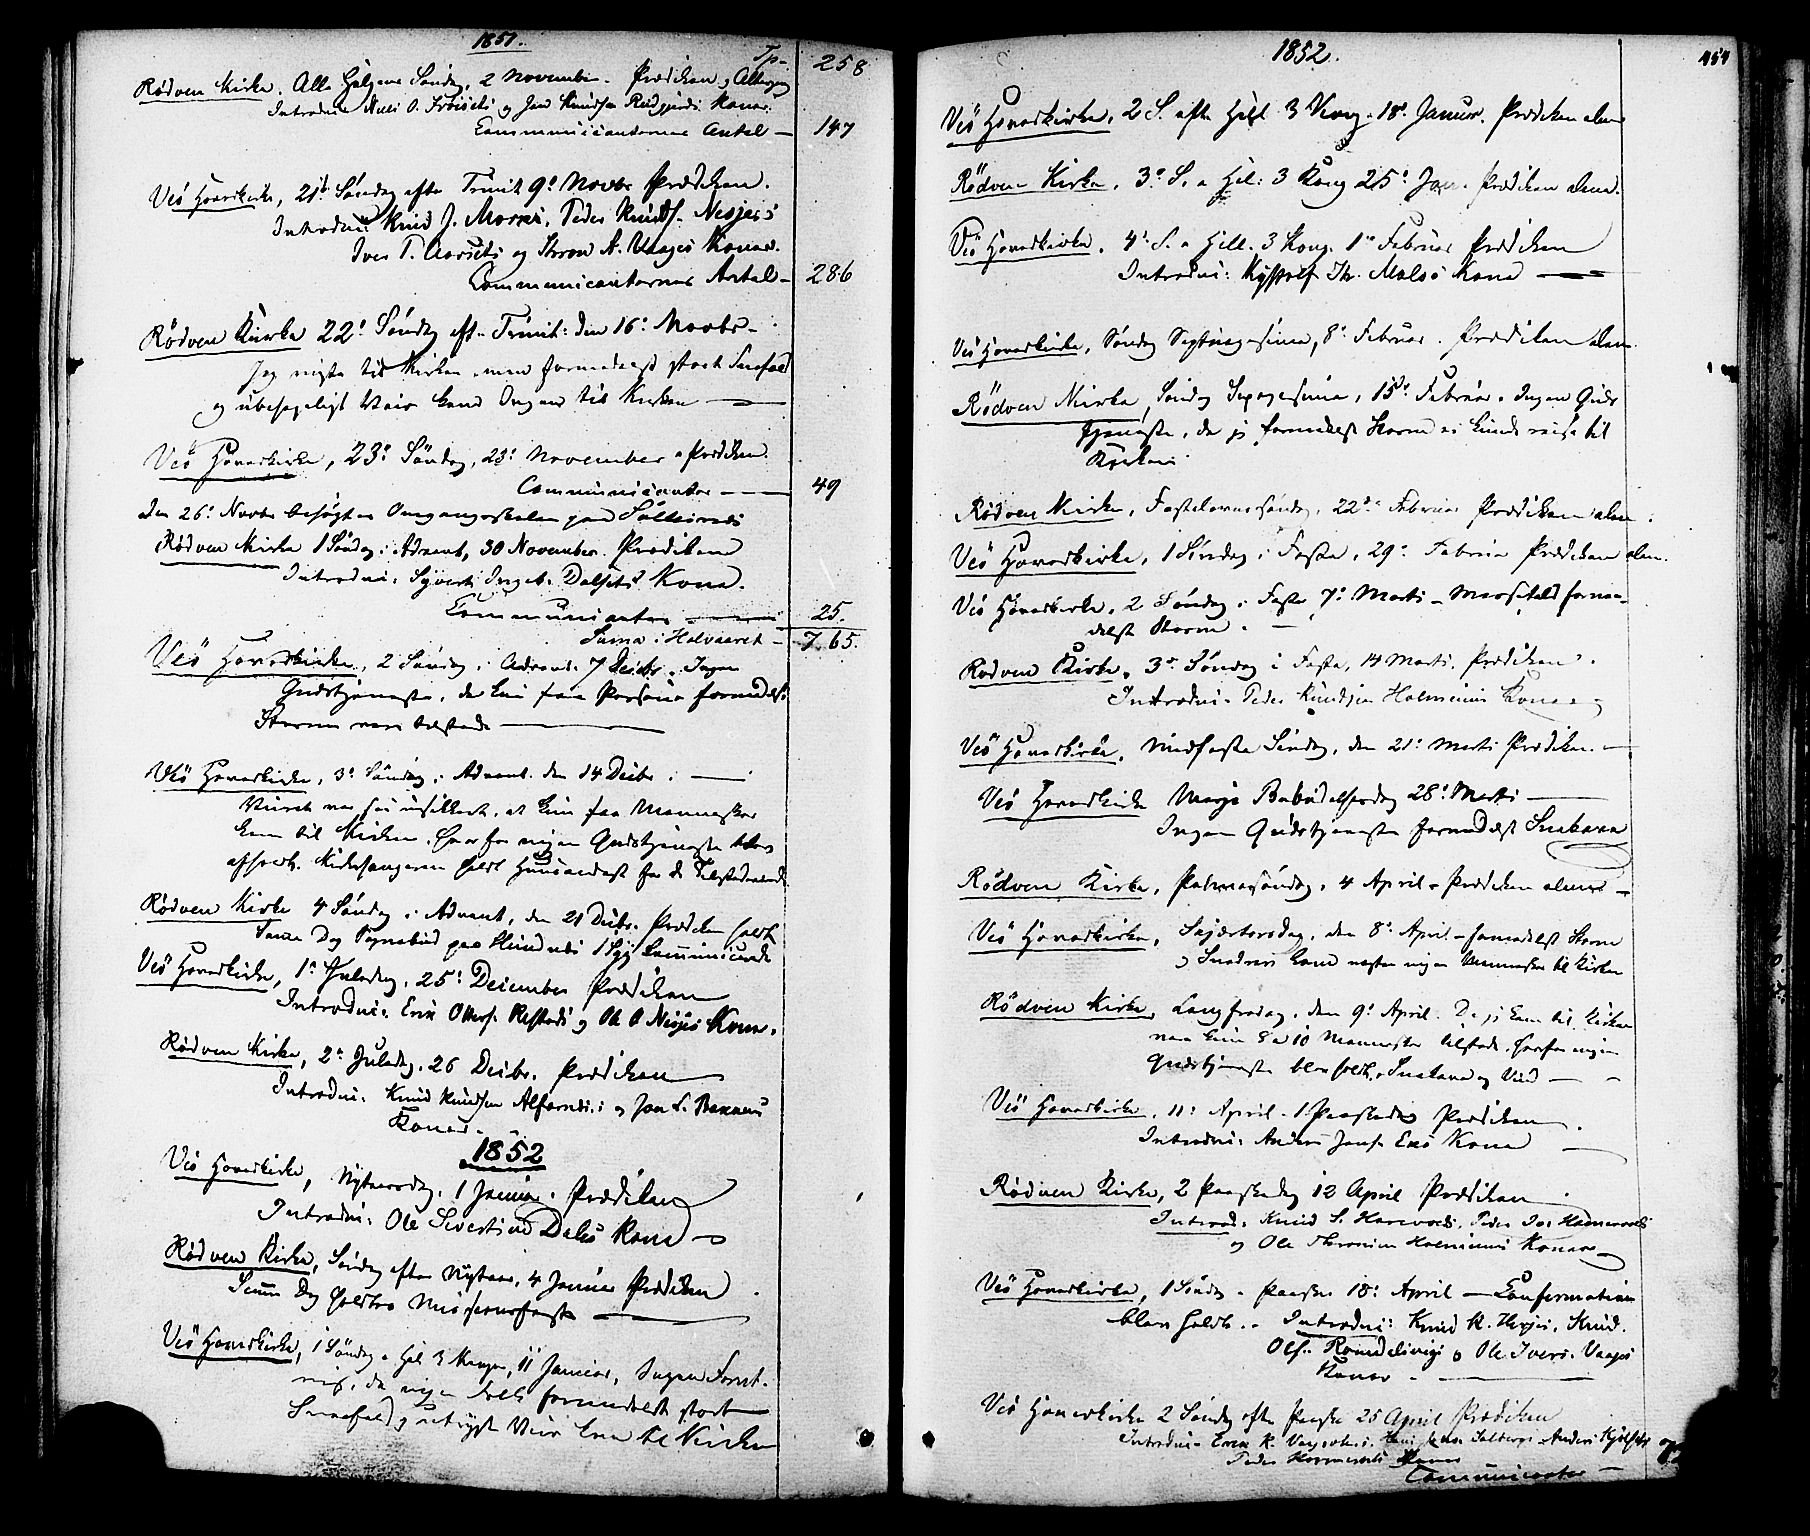 1851.
Tp. 258
Rødven Kirke. Alle Helgens Søndag, 2 November. Prædiken og Altergang
Introdu Knud Rødgjerds Koner.
Communicanternes Antal — 147
Veö Hovedkirke, 21de Søndag efter Trinit. 9de Novbr Prædiken.
Introdu: Knud J. Peder Knuds. Nesjes
Iver T. og A. Vaages Koner.
Communicanternes Antal — 286
Rødven Kirke 22de Søndag eft. Trinit: den 16de Novbr.
Jeg reiste til Kirken, men formedelst stort Snefald
og ubehageligt Veir kom Ingen til Kirken —
Veö Hovedkirke, 23de Søndag, 23de November Prædiken.
Communicanter — 49
Den 26de Novbr besøgtes Omgangsskolen paa
Rødven Kirke 1 Søndag i Advent, 30 November. Prædiken
Introdu: Syvert Ingeb. Dalsets Kone.
Communicanter — 25.
Suma i Halvaaret — 765.
Veö Hovedkirke, 2 Søndag i Advent. 7 Decbr. Ingen
Gudstjeneste, da kun faa Personer formedelst
Storm vare tilstede —
Veö Hovedkirke, 3de Søndag i Advent. den 14 Decbr. —
Veiret var saa usikkert, at kun faa Mennesker
kom til Kirken, hvorfor ingen Gudstjeneste blev
afholdt. Kirkesangeren holdt Huusandagt for de Tilstedeværende
Rødven Kirke 4 Søndag i Advent, den 21 Decbr. Prædiken holdt
Samme Dag Sognebud paa 1 Syg Communicerede
Veö Hovedkirke, 1ste Juledag, 25de December Prædiken
Introdu: Erik Otters. og Ole O Nesjes Koner.
Rødven Kirke, 2den Juledag, 26 Decbr. Prædiken
Introdu: Knud Knudsen og Jon L.
Koner.
1852
Veö Hovedkirke, Nytaarsdag, 1 Januar. Prædiken
Introdu: Ole Sivertsen Dales Kone —
Rødven Kirke, Søndag efter Nytaar, 4 Januar Prædiken.
Samme Dag holdtes Missionsfest —
Veö Hovedkirke, 1 Søndag e. Hel. 3 Konger, 11 Januar, Ingen Forret-
ning, da ingen Folk formedelst stort
Snefald og utrygt Veir kom til Kirken
1852.
454
Veö Hovedkirke, 2 S. efter Hel. 3 Kong. 18de Januar. Prædiken alene
Rødven Kirke, 3de S. e Hel: 3 Kong 25de Jan. Prædiken alene.
Veö Hovedkirke, 4de S. e Hell. 3 Kong. 1ste Februar Prædiken
Introdu: Th. Malsö Kone —
Veö Hovedkirke, Søndag Septuagesima, 8de Februar. Prædiken alene.
Rødven Kirke, Søndag Sexagesima, 15de Februar. Ingen Guds-
tjeneste, da jeg formedelst Storm ei kunde reise til
Kirken.
Rødven Kirke, Fastelavnssøndag, 22de Februar Prædiken alene.
Veö Hovedkirke, 1 Søndag i Faste, 29de Februar Prædiken alene.
Veö Hovedkirke, 2 Søndag i Faste 7de Marts — Messefald forme-
delst Storm. —
Rødven Kirke, 3de Søndag i Faste, 14 Marts. Prædiken.
Introdu: Peder Knudsen Holmems Kone
Veö Hovedkirke, Midfaste Søndag, den 21de Marts Prædiken. —
Veö Hovedkirke Mariæ Bebudelsesdag 28de Marts —
Ingen Gudstjeneste formedelst Snekave
Rødven Kirke, Palmesøndag, 4 April. Prædiken alene —
Veö Hovedkirke, Skjærtorsdag, den 8de April — formedelst Storm
og Snedrev kom næsten ingen Mennesker til Kirken
Rødven Kirke, Langfredag, den 9de April. Da jeg kom til Kirken
vare kun 8 a 10 Mennesker tilstede, hvorfor ingen
Gudstjeneste blev holdt, Snekave og Vind —
Veö Hovedkirke, 11te April. 1 Paaskedag Prædiken.
Introdu: Anders Jons. Exö Kone —
Rødven Kirke, 2 Paaskedag 12 April Prædiken.
Introd: Knud S. Peder
og Ole Holmems Koner
Veö Hovedkirke, 1 Søndag e. Paaske 18de April — Confirmation
blev holdt. — Introdu: Knud K. Knud
Ols. og Ole Ivers. Vaages
Koner. —
Veö Hovedkirke 2 Søndag efter Paaske 25 April Prædiken
Introdu: Erik K. Anders
Peder Koner
Communicanter —